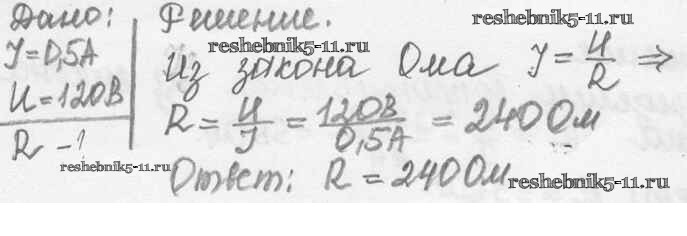 Дано:
I=0,5А
U=120В
R-?
Решение.
Из закона Ома I=U/R ⇒
R = U/I = 120В/0,5А = 240Ом
Ответ: R = 240Ом
reshebnik5-11.ru
reshebnik5-11.ru
reshebnik5-11.ru
reshebnik5-11.ru